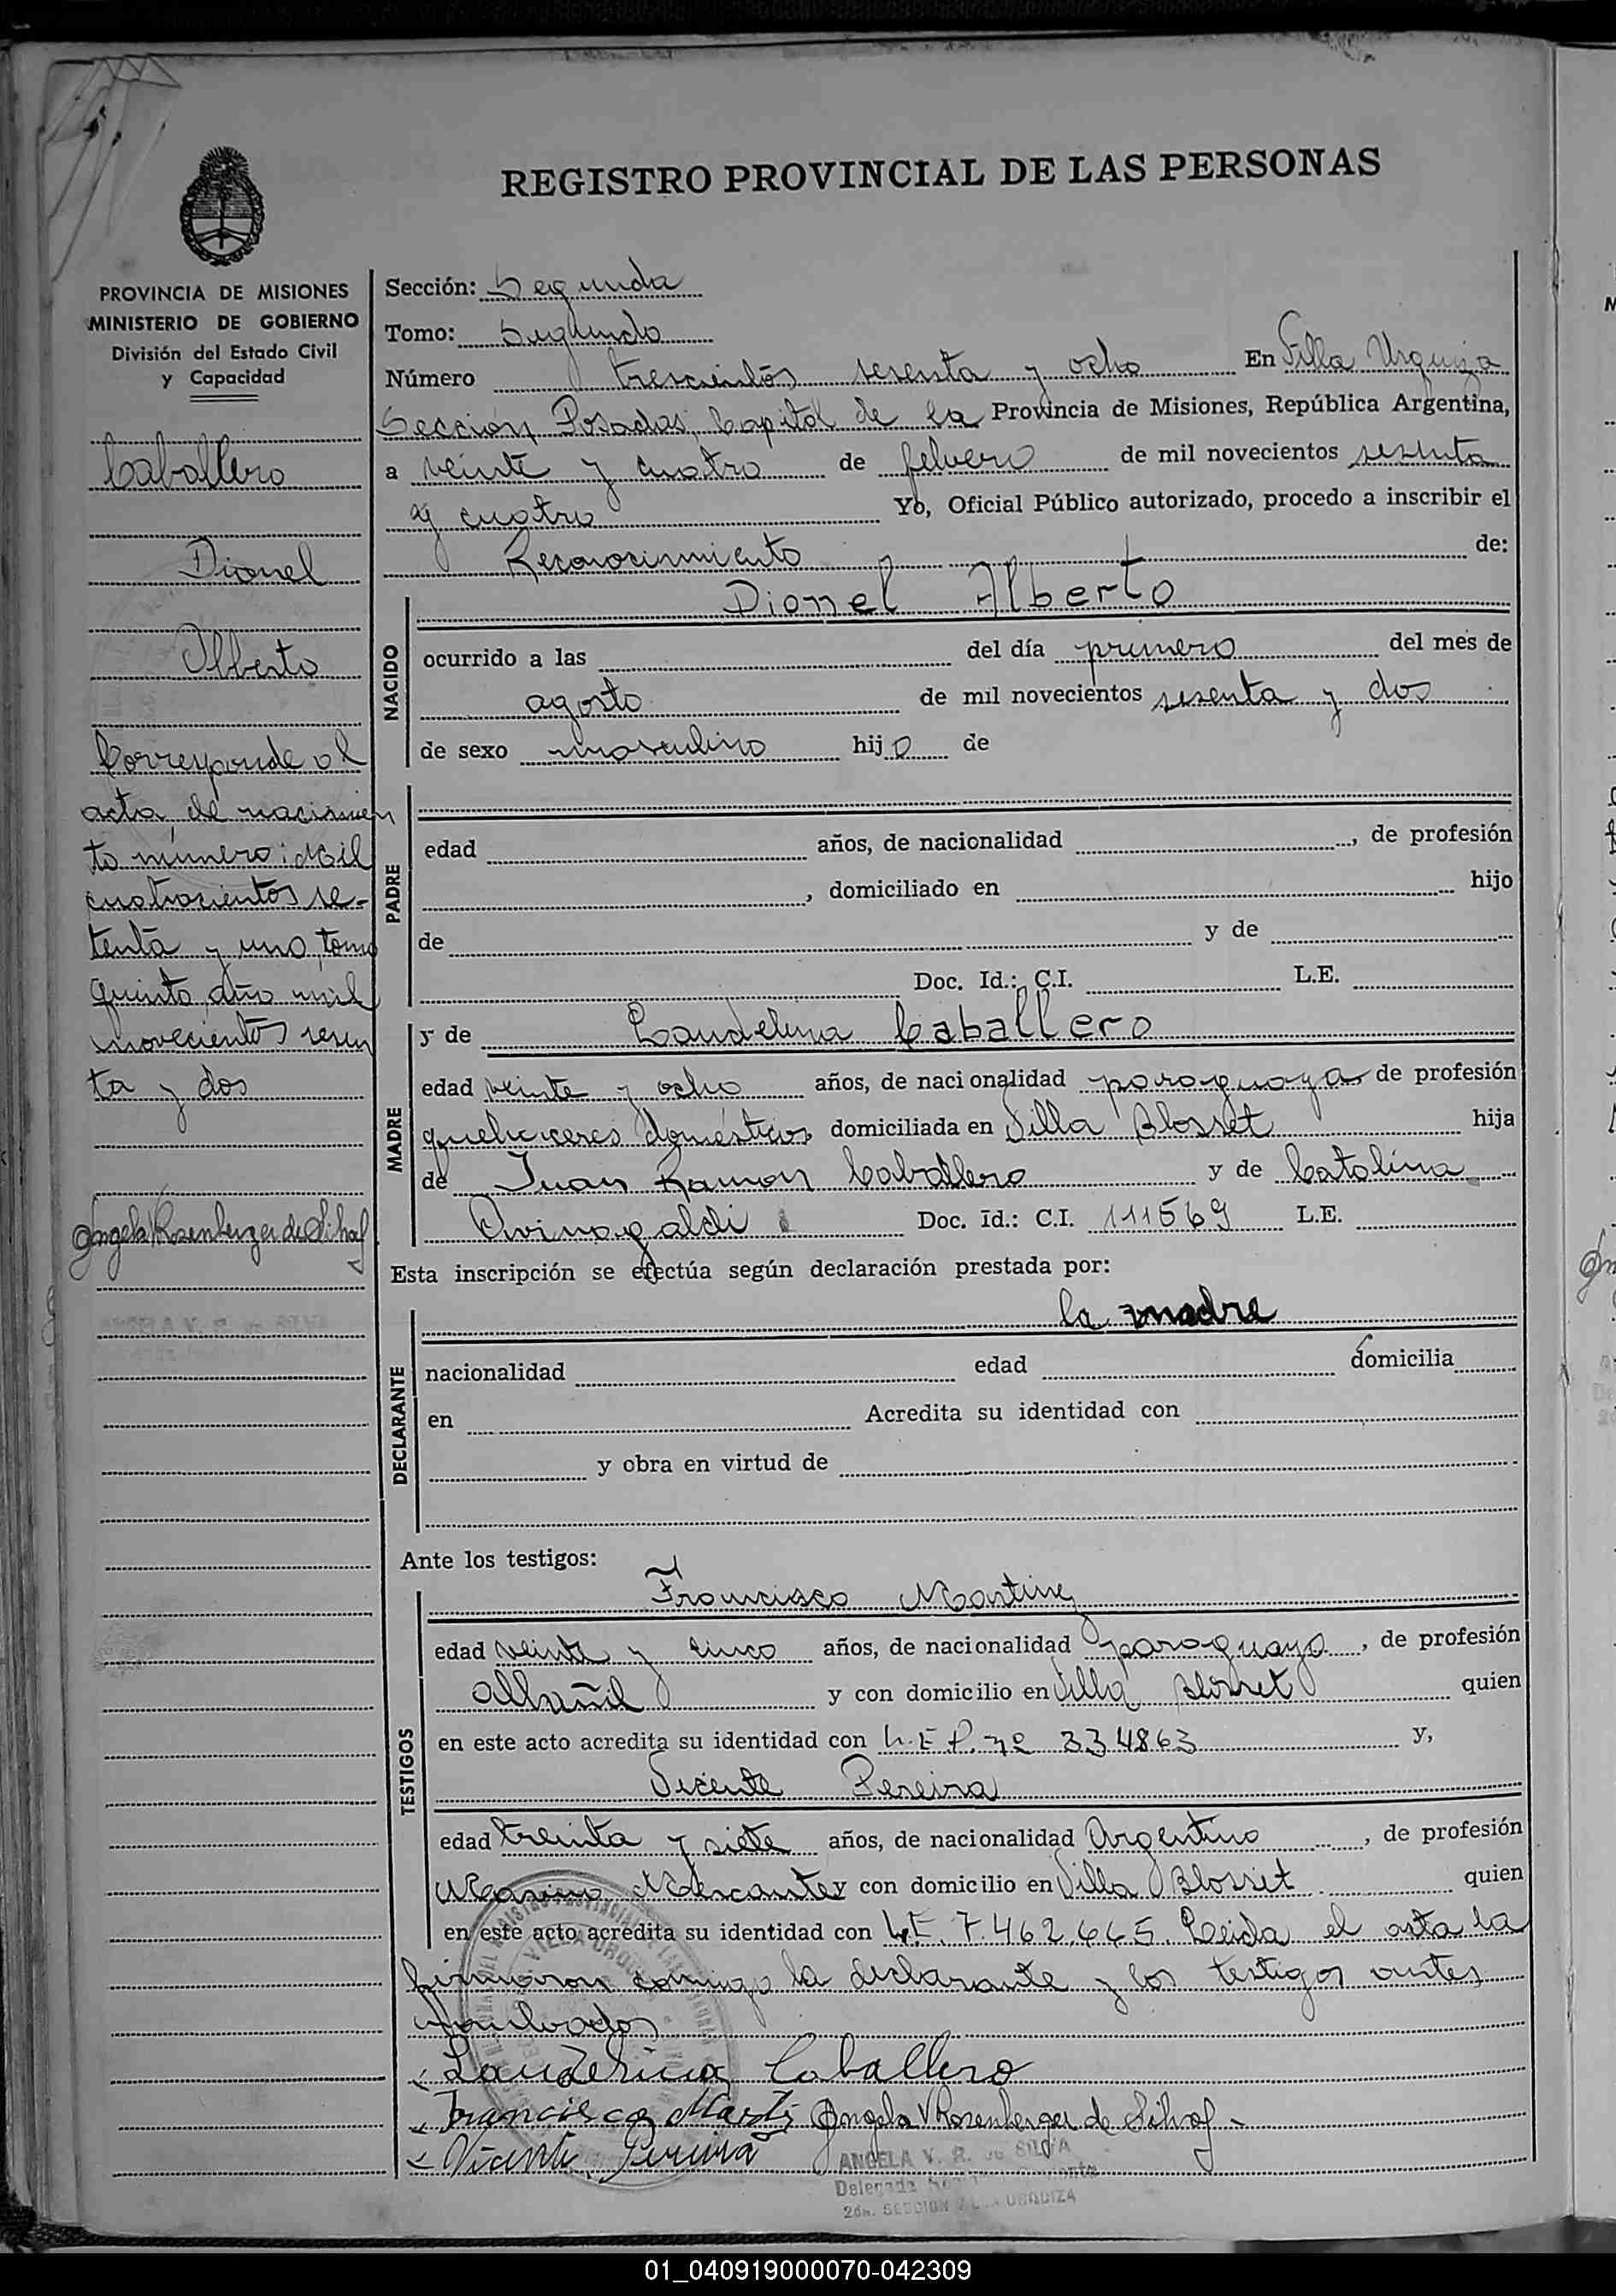 REGISTRO PROVINCIAL DE LAS PERSONAS
PROVINCIA DE MISIONES
MINISTERIO DE GOBIERNO
División del Estado Civil
y Capacidad
Caballero
Dionel
Alberto
Corresponde al
acta de nacimien
to número: Mil
cuatrocientos se-
tenta y uno, tomo
quinto, año mil
novecientos sesen
ta y dos
Angela V Rosenberger de Silva
Sección: Segunda
Tomo: Segundo
Número trescientos sesenta y ocho En Villa Urquiza
Sección Posadas, Capital de la Provincia de Misiones, República Argentina,
a veinte y cuatro de febrero de mil novecientos sesenta
y cuatro Yo, Oficial Público autorizado, procedo a inscribir el
Reconocimiento de:
NACIDO
Dionel Alberto
ocurrido a las del día primero del mes de
agosto de mil novecientos sesenta y dos
de sexo masculino hijo de
PADRE
edad años, de nacionalidad , de profesión
, domiciliado en hijo
de y de
Doc. Id.: C.I. L.E.
MADRE
y de Laudelina Caballero
edad veinte y ocho años, de nacionalidad paraguaya de profesión
quehaceres domésticos domiciliada en Villa Blosset hija
de Juan Ramon Caballero y de Catalina
Doc. Id.: C.I. 111569 L.E.
Esta inscripción se efectúa según declaración prestada por:
DECLARANTE
la madre
nacionalidad edad domicilia
en Acredita su identidad con
y obra en virtud de
Ante los testigos:
TESTIGOS
Francisco Martinez
edad veinte y cinco años, de nacionalidad paraguayo, de profesión
albañil y con domicilio en Villa Blosset quien
en este acto acredita su identidad con 334863 y,
Vicente Pereira
edad treinta y siete años, de nacionalidad Argentino, de profesión
Marino Mercante y con domicilio en Villa Blosset quien
en este acto acredita su identidad con L.E. 7.462.665. Leida el acta la
firmaron conmigo la declarante y los testigos antes
Laudelina Caballero
Francisco Martinez Angela V Rosenberger de Silva
Vicente Pereira
ANGELA V. R. de SILVA
Delegada
2da. SECCION VILLA URQUIZA
01_040919000070-042309